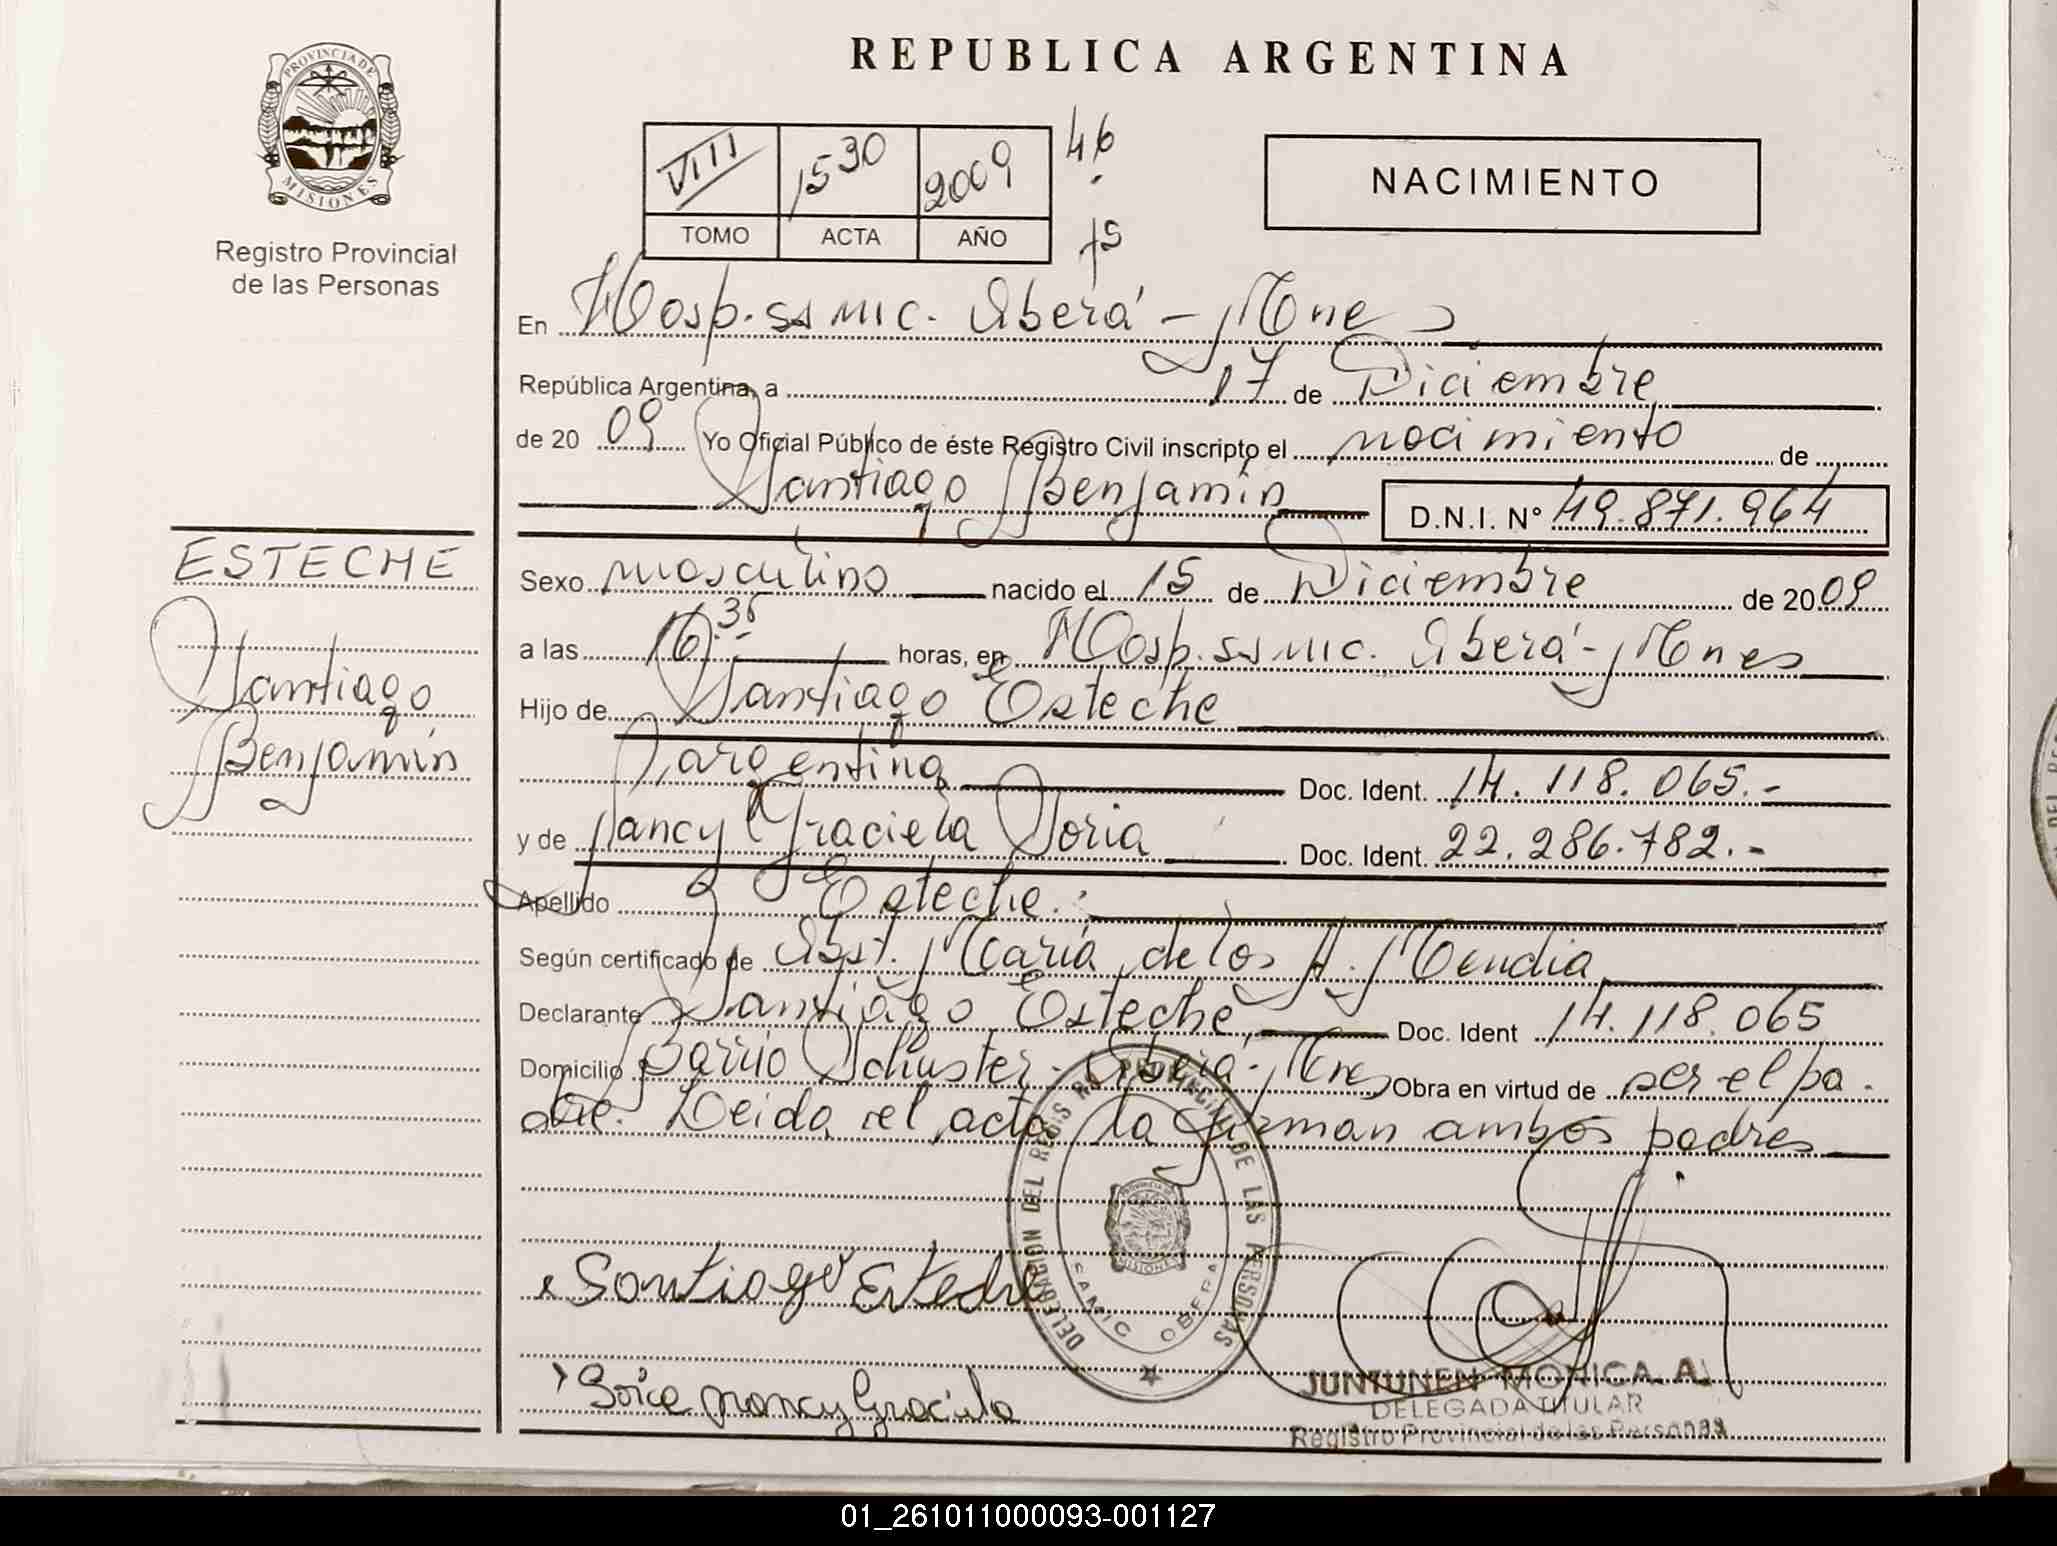 PROVINCIA DE
MISIONES
Registro Provincial
de las Personas
REPUBLICA ARGENTINA
VIII 1530 2009
TOMO ACTA AÑO
46
15
NACIMIENTO
En Hosp. ss mic. Oberá - Mnes
República Argentina, a 17 de Diciembre
de 2009 Yo Oficial Público de éste Registro Civil inscripto el nacimiento de
Santiago Benjamín D.N.I. N° 49.871.964
ESTECHE
Santiago
Benjamín
Sexo masculino nacido el 15 de Diciembre de 2009
a las 16.35 horas, en Hosp. ss mic. Oberá - Mnes
Hijo de Santiago Esteche
argentina Doc. Ident. 14.118.065.-
y de Nancy Graciela Soria Doc. Ident. 22.286.782.-
Apellido Esteche.
Según certificado de Obst. María de los A. Mendia
Declarante Santiago Esteche Doc. Ident 14.118.065
Domicilio Barrio Schuster - Oberá - Mnes Obra en virtud de ser el pa-
dre. Leida el acta la firman ambos padres
DELEGACION DEL REGISTRO PROVINCIAL DE LAS PERSONAS
PROVINCIA DE
MISIONES
SAMIC OBERA
x Santiago Esteche
Soria Nancy Graciela
JUNTUNEN MONICA A.
DELEGADA TITULAR
Registro Provincial de las Personas
01_261011000093-001127